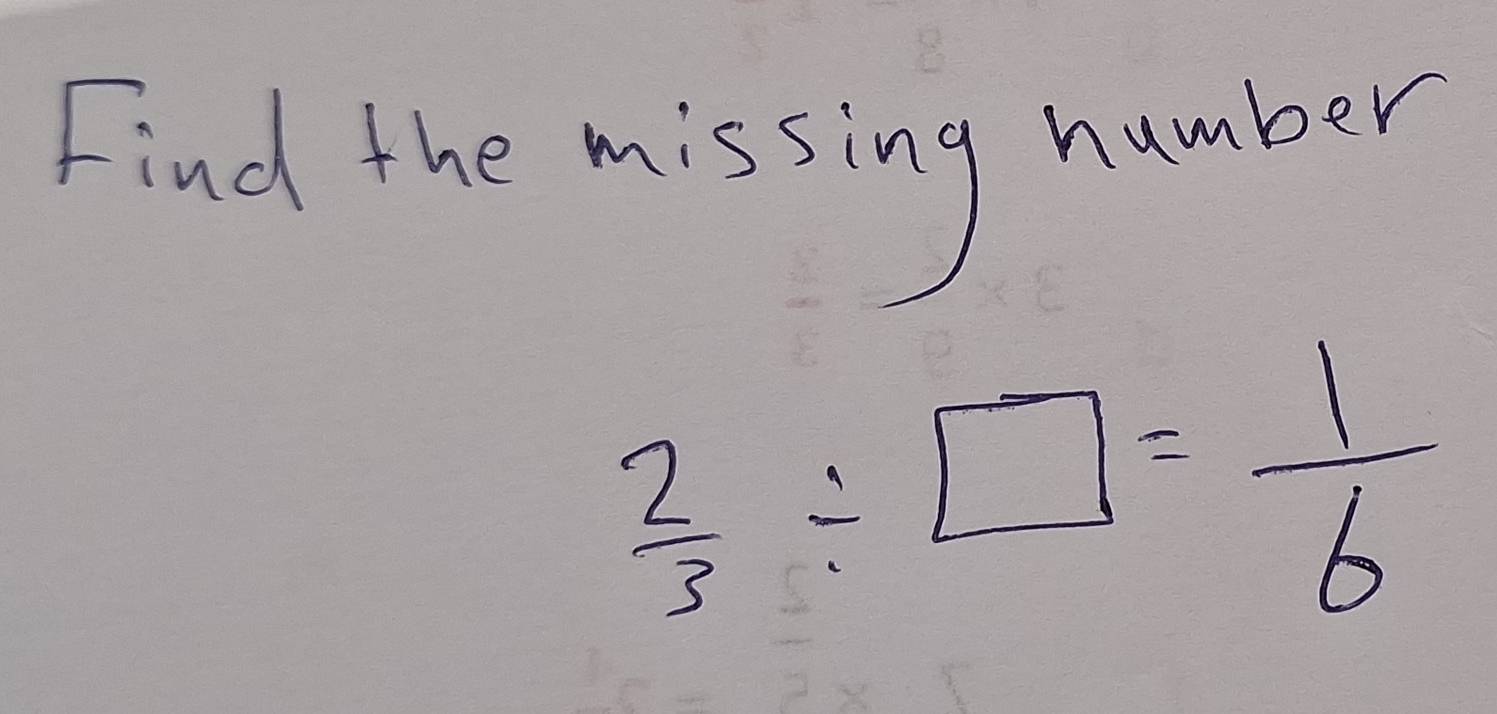 Find the missing number
2/3 ÷ □ = 1/6